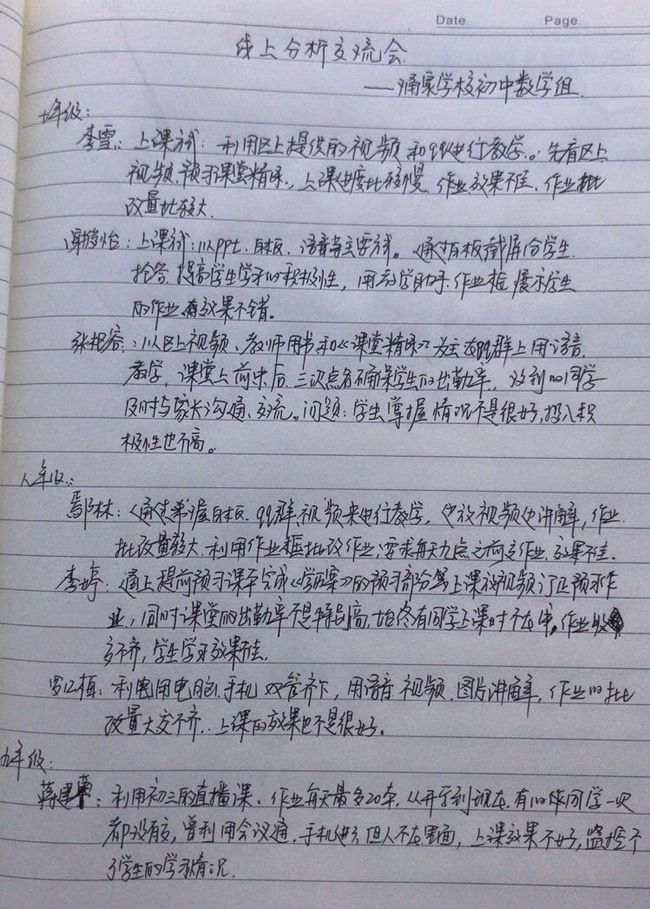 Date. Page.
线上分析交流会
——涌泉学校初中数学组
七年级:
李雪:上课前:利用区上提供的视频和qq进行教学。先看区上
视频、预习课堂精练,上课进度比较慢,作业效果不佳,作业批
改量比较大.
怡:上课前:以ppt、白板、语音为主要方式。通过白板截屏给学生
抢答,提高学生学习的积极性,用学助手作业框展示学生
的作业,效果不错。
张:以区上视频、教师用书和《课堂精练》为主在qq群上用语音
教学,课堂上前中后三次点名确保学生的出勤率,没到的同学
及时与家长沟通、交流。问题:学生掌握情况不是很好,投入积
极性也不高。
八年级:
鄢林:通过希沃白板、qq群视频来进行教学,边放视频边讲解,作业
批改量较大,利用作业框批改作业,要求每天九点之前交作业,效果不佳.
李婷:晚上提前预习课本完成《学案》的预习部分,上课放视频订正预习作
业,同时课堂的出勤率不是特别高,始终有同学上课时不在,作业收
交不齐,学生学习效果不佳.
罗:利用电脑、手机双管齐下,用语音、视频、图片讲解,作业的批
改量大交不齐,上课的效果也不是很好。
九年级:
蒋建:利用初三的直播课,作业每天最多20本,从开学到现在,有的同学一次
都没有交,曾利用会议通,手机进了但人不在里面,上课效果不好,监控不
了学生的学习情况.